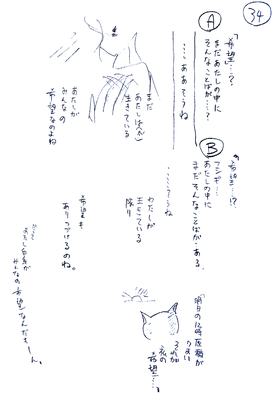 34
A
「希望…?
まだあたしの中に
そんなことばが…?
……ああそうね
まだ
あたしは
生きている
あたしが
みんなの
希望なのよね
B
「希望…!?
フシギ…
あたしの中に
まだそんなことばが・ある。
……そうね
わたしが
生きている
限り
希望も
ありつづけるのね。
あたし自身が
みんなの希望なんだもーん。
「明日の
私の
希望…。